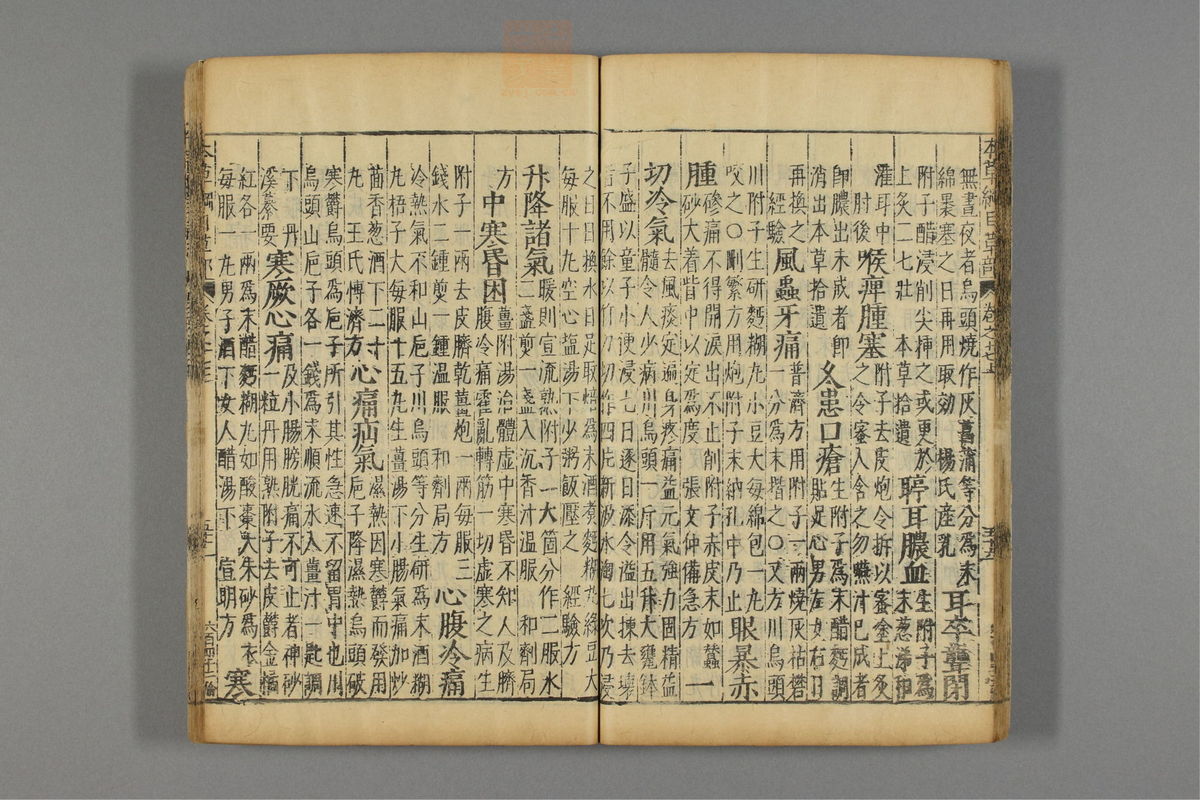 無晝夜者烏頭燒作灰菖蒲等分爲末 耳卒聾閉
綿裹塞之日再用取効 楊氏產乳
附子醋浸削尖挿之或更於上灸二七壯 本草拾遺 聤耳膿血 生附子爲末葱涕和
灌耳中 肘後 喉痺腫塞 附子去皮炮令拆以蜜塗上炙之令蜜入含之勿嚥汁已成者
卽膿出未成者卽消出本草拾遺 久患口瘡 生附子爲末醋麪調貼足心男左女右日
再換之 經驗 風蟲牙痛 普濟方用附子一兩燒灰枯礬一分爲末揩之〇又方川烏頭
川附子生研麪糊丸小豆大每綿包一丸咬之〇刪繁方用炮附子末納孔中乃止 眼暴赤
腫 磣痛不得開淚出不止削附子赤皮末如蠶砂大着眥中以定爲度 張文仲備急方 一
切冷氣 去風痰定遍身疼痛益元氣強力固精益髓令人少病川烏頭一斤用五升大甕鉢
子盛以童子小便浸七日逐日添令溢出揀去壞
者不用餘以竹刀切作四片新汲水淘七次乃浸
之日日換水日足取焙爲末酒煮麪糊丸綠豆大
每服十丸空心鹽湯下少粥飯壓之 經驗方
升降諸氣 暖則宣流熟附子一大箇分作二服水二盞煎一盞入沉香汁溫服 和劑局
方 中寒昏困 薑附湯治體虛中寒昏不知人及臍腹冷痛霍亂轉筋一切虛寒之病生
附子一兩去皮臍乾薑炮一兩每服三錢水二鍾煎一鍾溫服 和劑局方 心腹冷痛
冷熱氣不和山梔子川烏頭等分生研爲末酒糊丸梧子大每服十五丸生薑湯下小腸氣痛加炒
茴香葱酒下二十丸 王氏博濟方 心痛疝氣 濕熱因寒鬱而發用梔子降濕熱烏頭破
寒鬱烏頭爲梔子所引其性急速不留胃中也川
烏頭山梔子各一錢爲末順流水入薑汁一匙調
下 丹溪纂要 寒厥心痛 及小腸膀胱痛不可止者神砂一粒丹用熟附子去皮鬱金橘
紅各一兩爲末醋麪糊丸如酸棗大朱砂爲衣
每服一丸男子酒下女人醋湯下 宣明方 寒